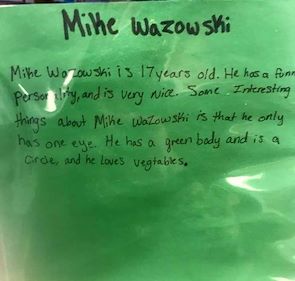 Mike Wazowski
Mike Wazowski is 17 years old. He has a funn
Personality, and is very nice. Some Interesting
things about Mike Wazowski is that he only
has one eye. He has a green body and is a
Circle, and he loves vegtables.